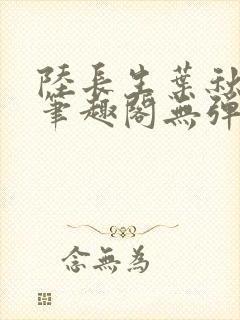 陸長生葉秋
筆趣閣無彈
念無為